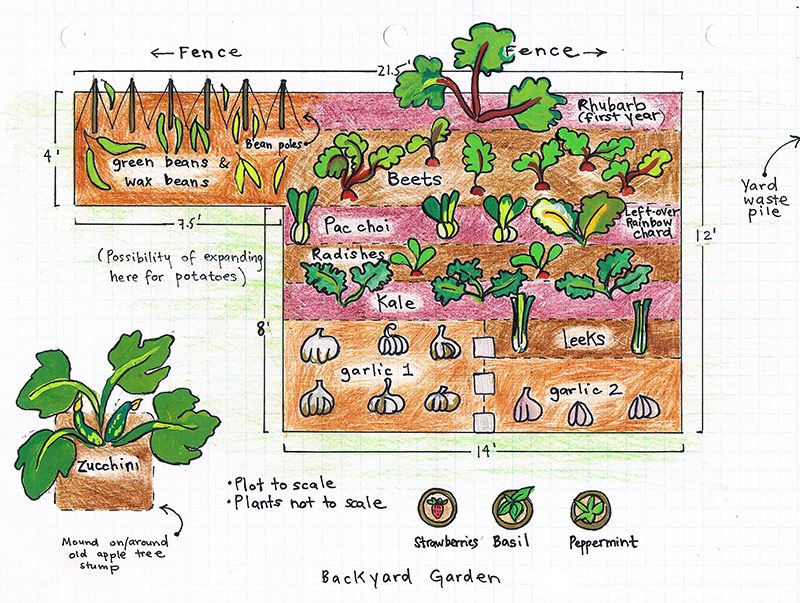 ← Fence
Fence →
21.5'
Rhubarb
(first year)
Bean poles
4'
green beans &
wax beans
Beets
Yard
waste
pile
7.5'
Pac choi
Left-over
Rainbow
chard
12'
(Possibility of expanding
here for potatoes)
Radishes
Kale
8'
Leeks
garlic 1
garlic 2
14'
Zucchini
• Plot to scale
• Plants not to scale
Mound on/around
old apple tree
stump
Strawberries
Basil
Peppermint
Backyard Garden